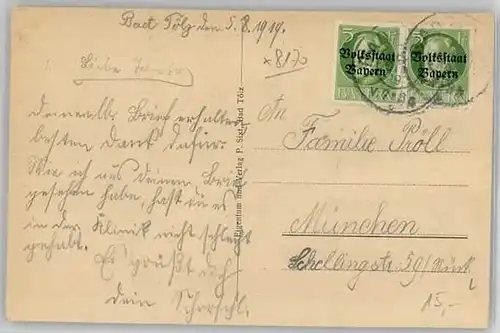 Bad Tölz den 5.8.1919.
Liebe
8170
5 Volksstaat Bayern
Volksstaat Bayern
deinen l. Brief erhalten
besten Dank dafür.
Wie ich aus deinem Brief
gesehen habe, hast du es
in der Klinik nicht schlecht
gehabt.
Es grüßt dich
dein Schorschl.
Eigentum und Verlag P. Sixt, Bad Tölz
An
Familie Pröll
München
Schellingstr. 59/
15,-